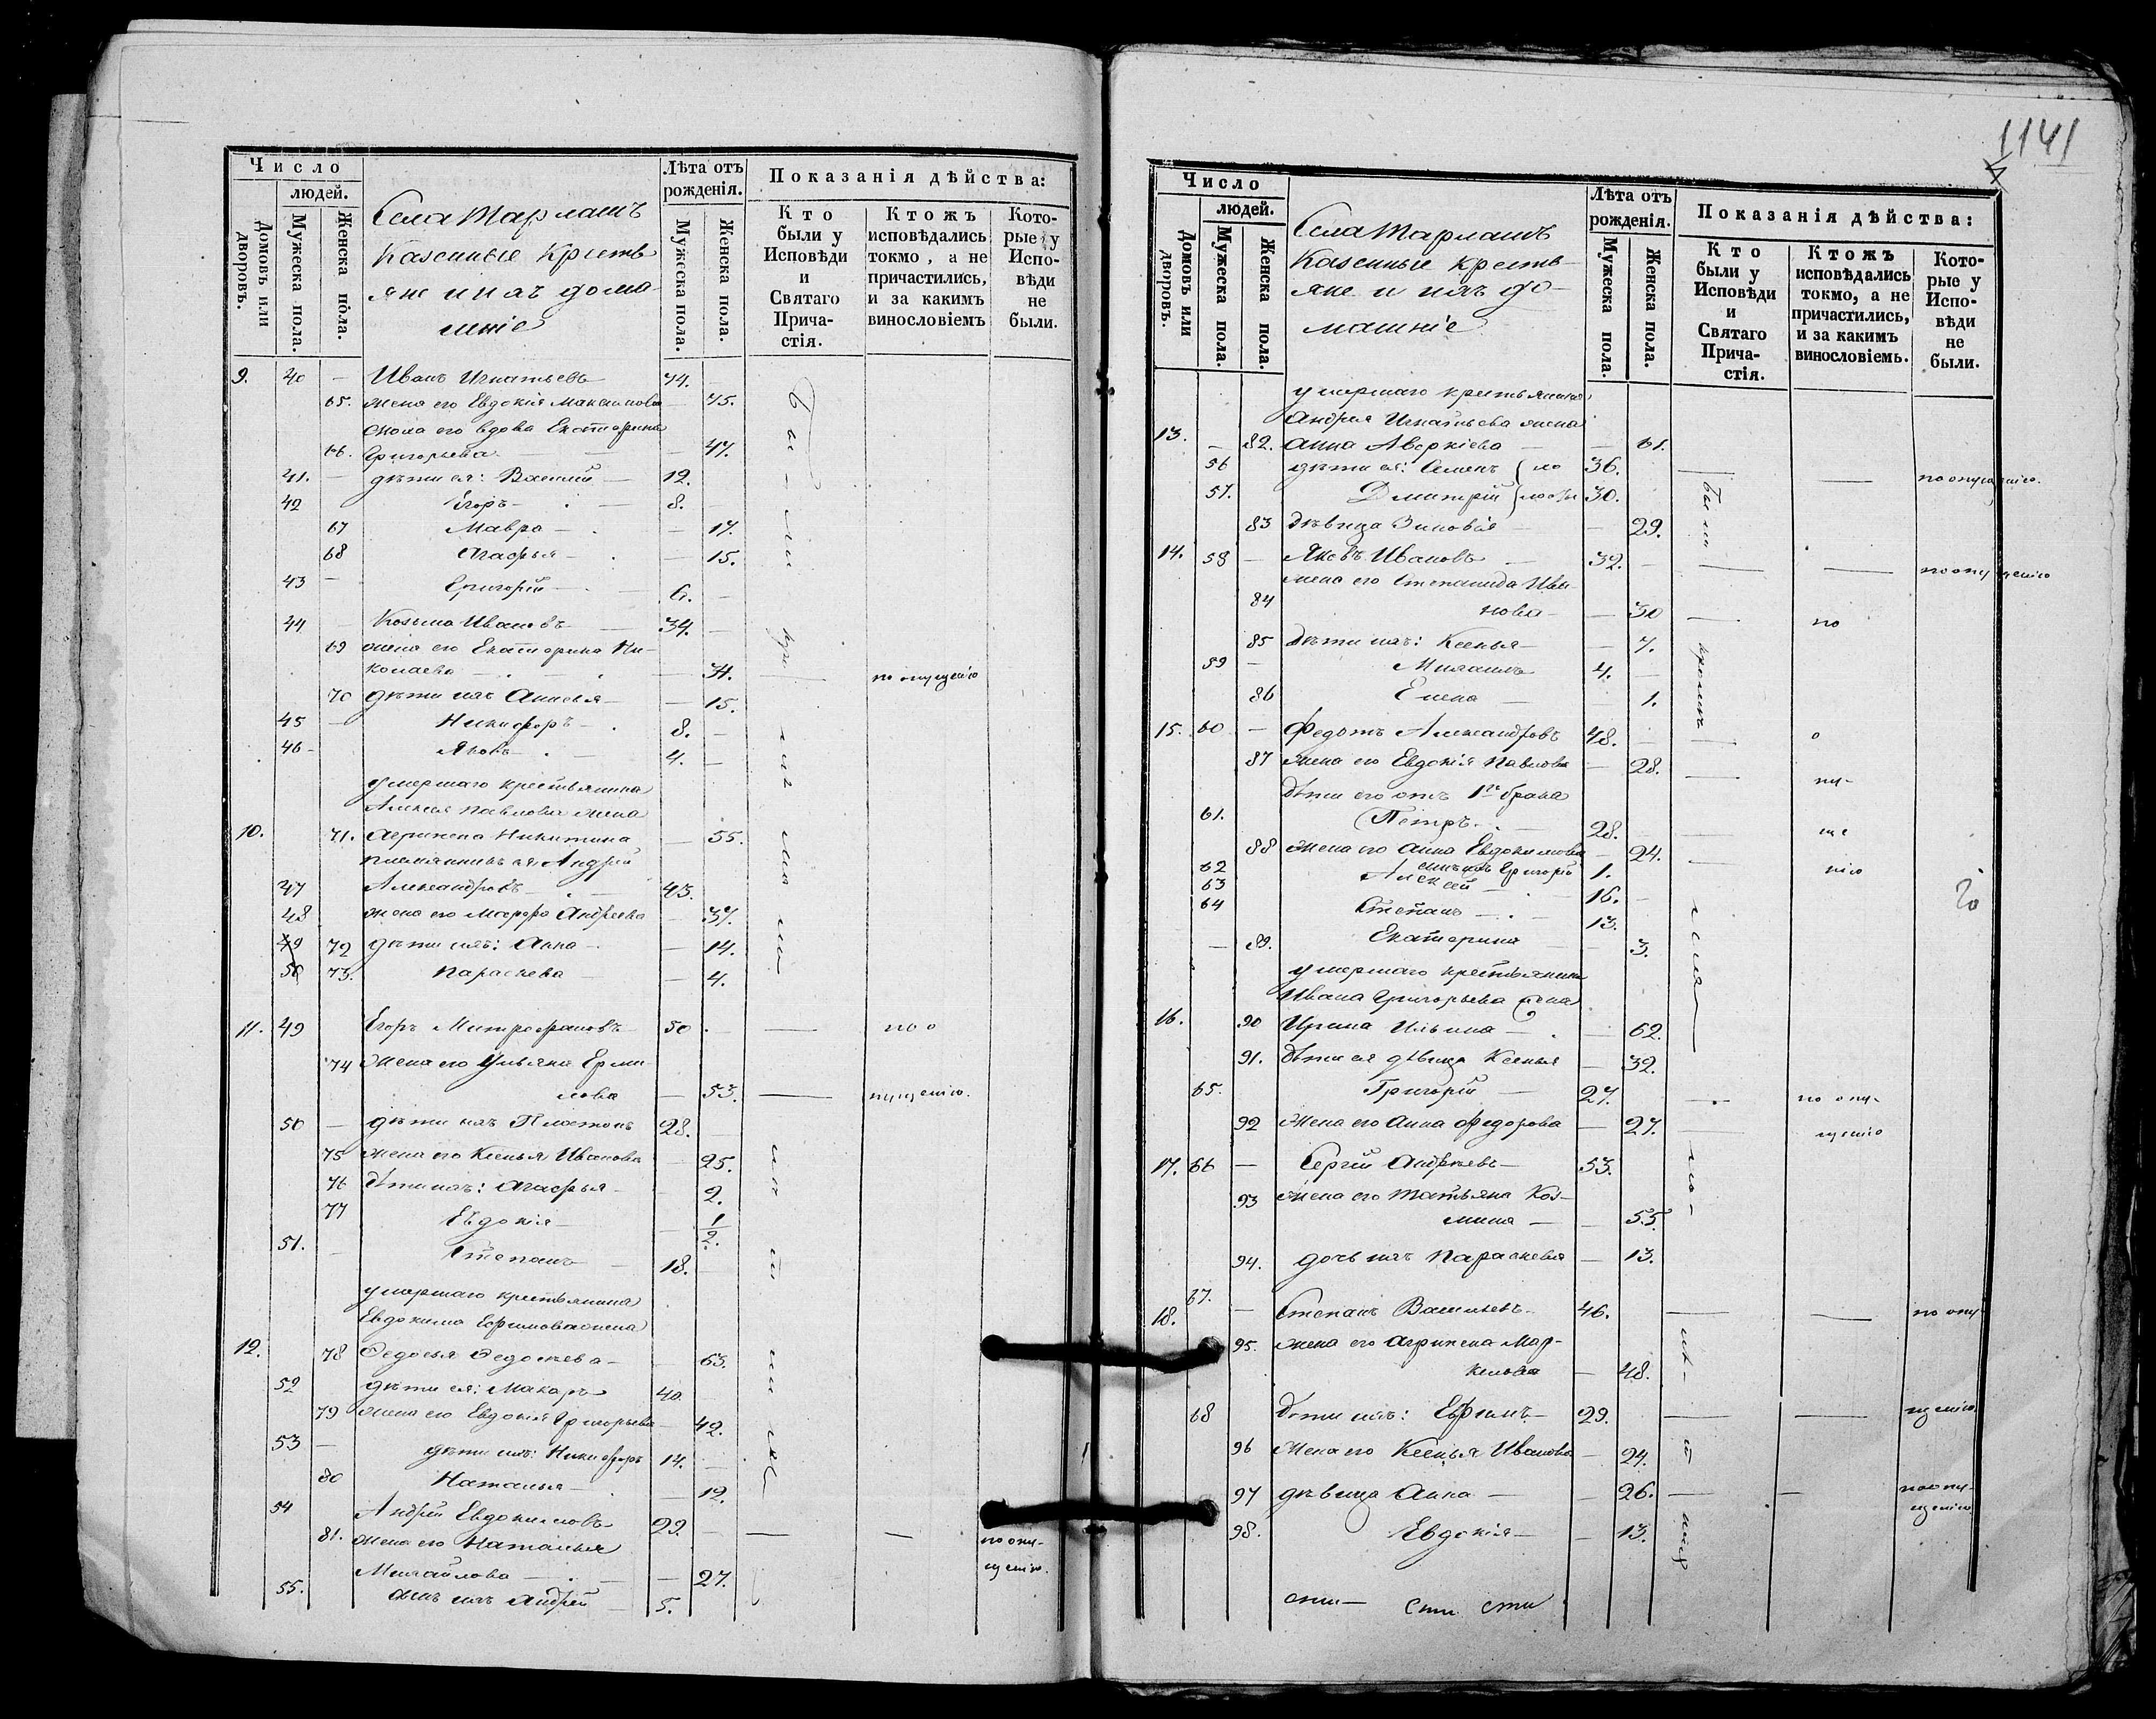 Число
людей.
Домовъ или дворовъ.
Мужеска пола.
Женска пола.
Села Тарлашъ
Казенные Кресть
яне и ихъ дома
шніе
Лѣта отъ рожденія.
Мужеска пола.
Женска пола.
Показанія дѣйства:
Кто были у Исповѣди и Святаго Прича-стія.
Ктожъ исповѣдались токмо, а не причастились, и за какимъ винословіемъ
Кото-рые у Испо-вѣди не были.
9. 40 — Иванъ Игнатьевъ 74.
65. жена его Евдокія Максимова 75.
сноха его вдова Екатерина
66. Григорьева 47.
41. — дѣти ея: Василій 12.
42 Егоръ 8.
67 Мавра 17.
68 Агафья 15.
43 — Григорій 6.
44 Козьма Ивановъ 34.
69 жена его Екатерина Ни-
колаева 34. по опущенію
70 дѣти ихъ Анисья 15.
45 — Никифоръ 8.
46 — Яковъ 4.
умершаго крестьянина
Алексея Павлова жена
10. 71. Агрипена Никитина 55.
племянникъ ея Андрей
47 Александровъ 43.
48 жена его Марфа Андреева 37.
49 72 дѣти ихъ: Анна 14.
50 73. Параскева 4.
11. 49 Егоръ Митрофановъ 50 по о
74 жена его Ульяна Ерми-
лова 53. пущенію.
50 — дѣти ихъ Платонъ 28.
75 жена его Ксенья Иванова 25.
76 дѣти ихъ: Агафья 2.
77 Евдокія 1/2.
51. — Степанъ 18.
умершаго крестьянина
Евдокима Ефимова жена
12. 78 Федосья Федотьева 63.
52 дѣти ея: Макаръ 40.
79 жена его Евдокія Григорьева 42.
53 — дѣти ихъ: Никифоръ 14.
80 Наталья 12.
54 Андрей Евдокимовъ 29.
81. жена его Наталья по опу-
Михайлова 27. щенію.
55. сынъ ихъ Андрей 5.
1141
Число
людей.
Домовъ или дворовъ.
Мужеска пола.
Женска пола.
Села Тарлашъ
Казенные кресть-
яне и ихъ до-
машніе
Лѣта отъ рожденія.
Мужеска пола.
Женска пола.
Показанія дѣйства:
Кто были у Исповѣди и Святаго Прича-стія.
Ктожъ исповѣдались токмо, а не причастились, и за какимъ винословіемъ.
Кото-рые у Испо-вѣди не были.
умершаго крестьянина
Андрея Игнатьева жена
13. — 82. Анна Аверкіева 61.
56 дѣти ея: Семенъ 36. по опущенію.
57. Дмитрій 30.
83 дѣвица Зиновія 29.
14. 58 — Яковъ Ивановъ 32. по опущенію
жена его Степанида Ива-
84 нова 30 по
85 дѣти ихъ: Ксенья 7.
59 — Михаилъ 4.
86 Елена 1.
15. 60 — Федотъ Александровъ 48. о
87 жена его Евдокія Павлова 28. пу-
дѣти его отъ 1го брака
61. Петръ 28. ще
88 жена его Анна Евдокимова 24.
62 сынъ ихъ Григорій 1. нію
63 Алексей 16.
64 Степанъ 13.
— 89. Екатерина 3.
умершаго крестьянина
Ивана Григорьева жена
16. 90 Ирина Ильина 62.
91. дѣти ея дѣвица Ксенья 32.
65. Григорій 27. по опу-
92 жена его Анна Федорова 27. щенію
17. 66 — Сергій Андреевъ 53.
93 жена его Татьяна Коз-
мина 55.
94. дочь ихъ Параскева 13.
18. 67. — Степанъ Васильевъ 46. по опу
95. жена его Агрипена Мар-
келова 48.
68 дѣти ихъ: Ефимъ 29. щенію.
96 жена его Ксенья Иванова 24.
97 дѣвица Анна 26. по опу-
щенію
98. Евдокія 13.